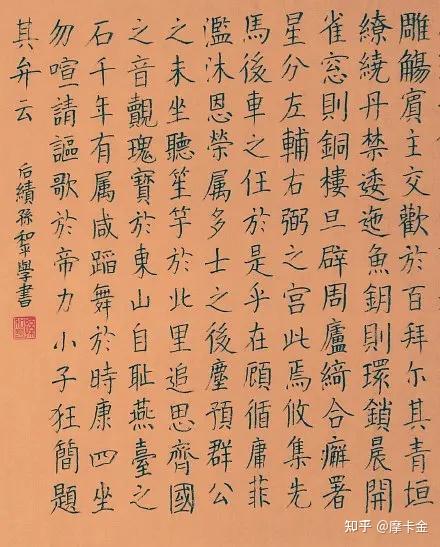 雕觴賓主交歡於百拜尔其青垣
繚繞丹禁逶迤魚鈅則環鎖晨開
雀窓則銅樓旦辟周廬綺合癬署
星分左輔右弼之宮此焉攸集先
馬後車之任於是乎在顾循庸菲
濫沐恩榮属多士之後塵預群公
之末坐聽笙竽於北里追思齊國
之音覿瑰寶於東山自耻燕臺之
石千年有属咸蹈舞於時康四坐
勿喧請謳歌於帝力小子狂簡題
其弁云
后績孫和平學書
知乎 @摩卡金